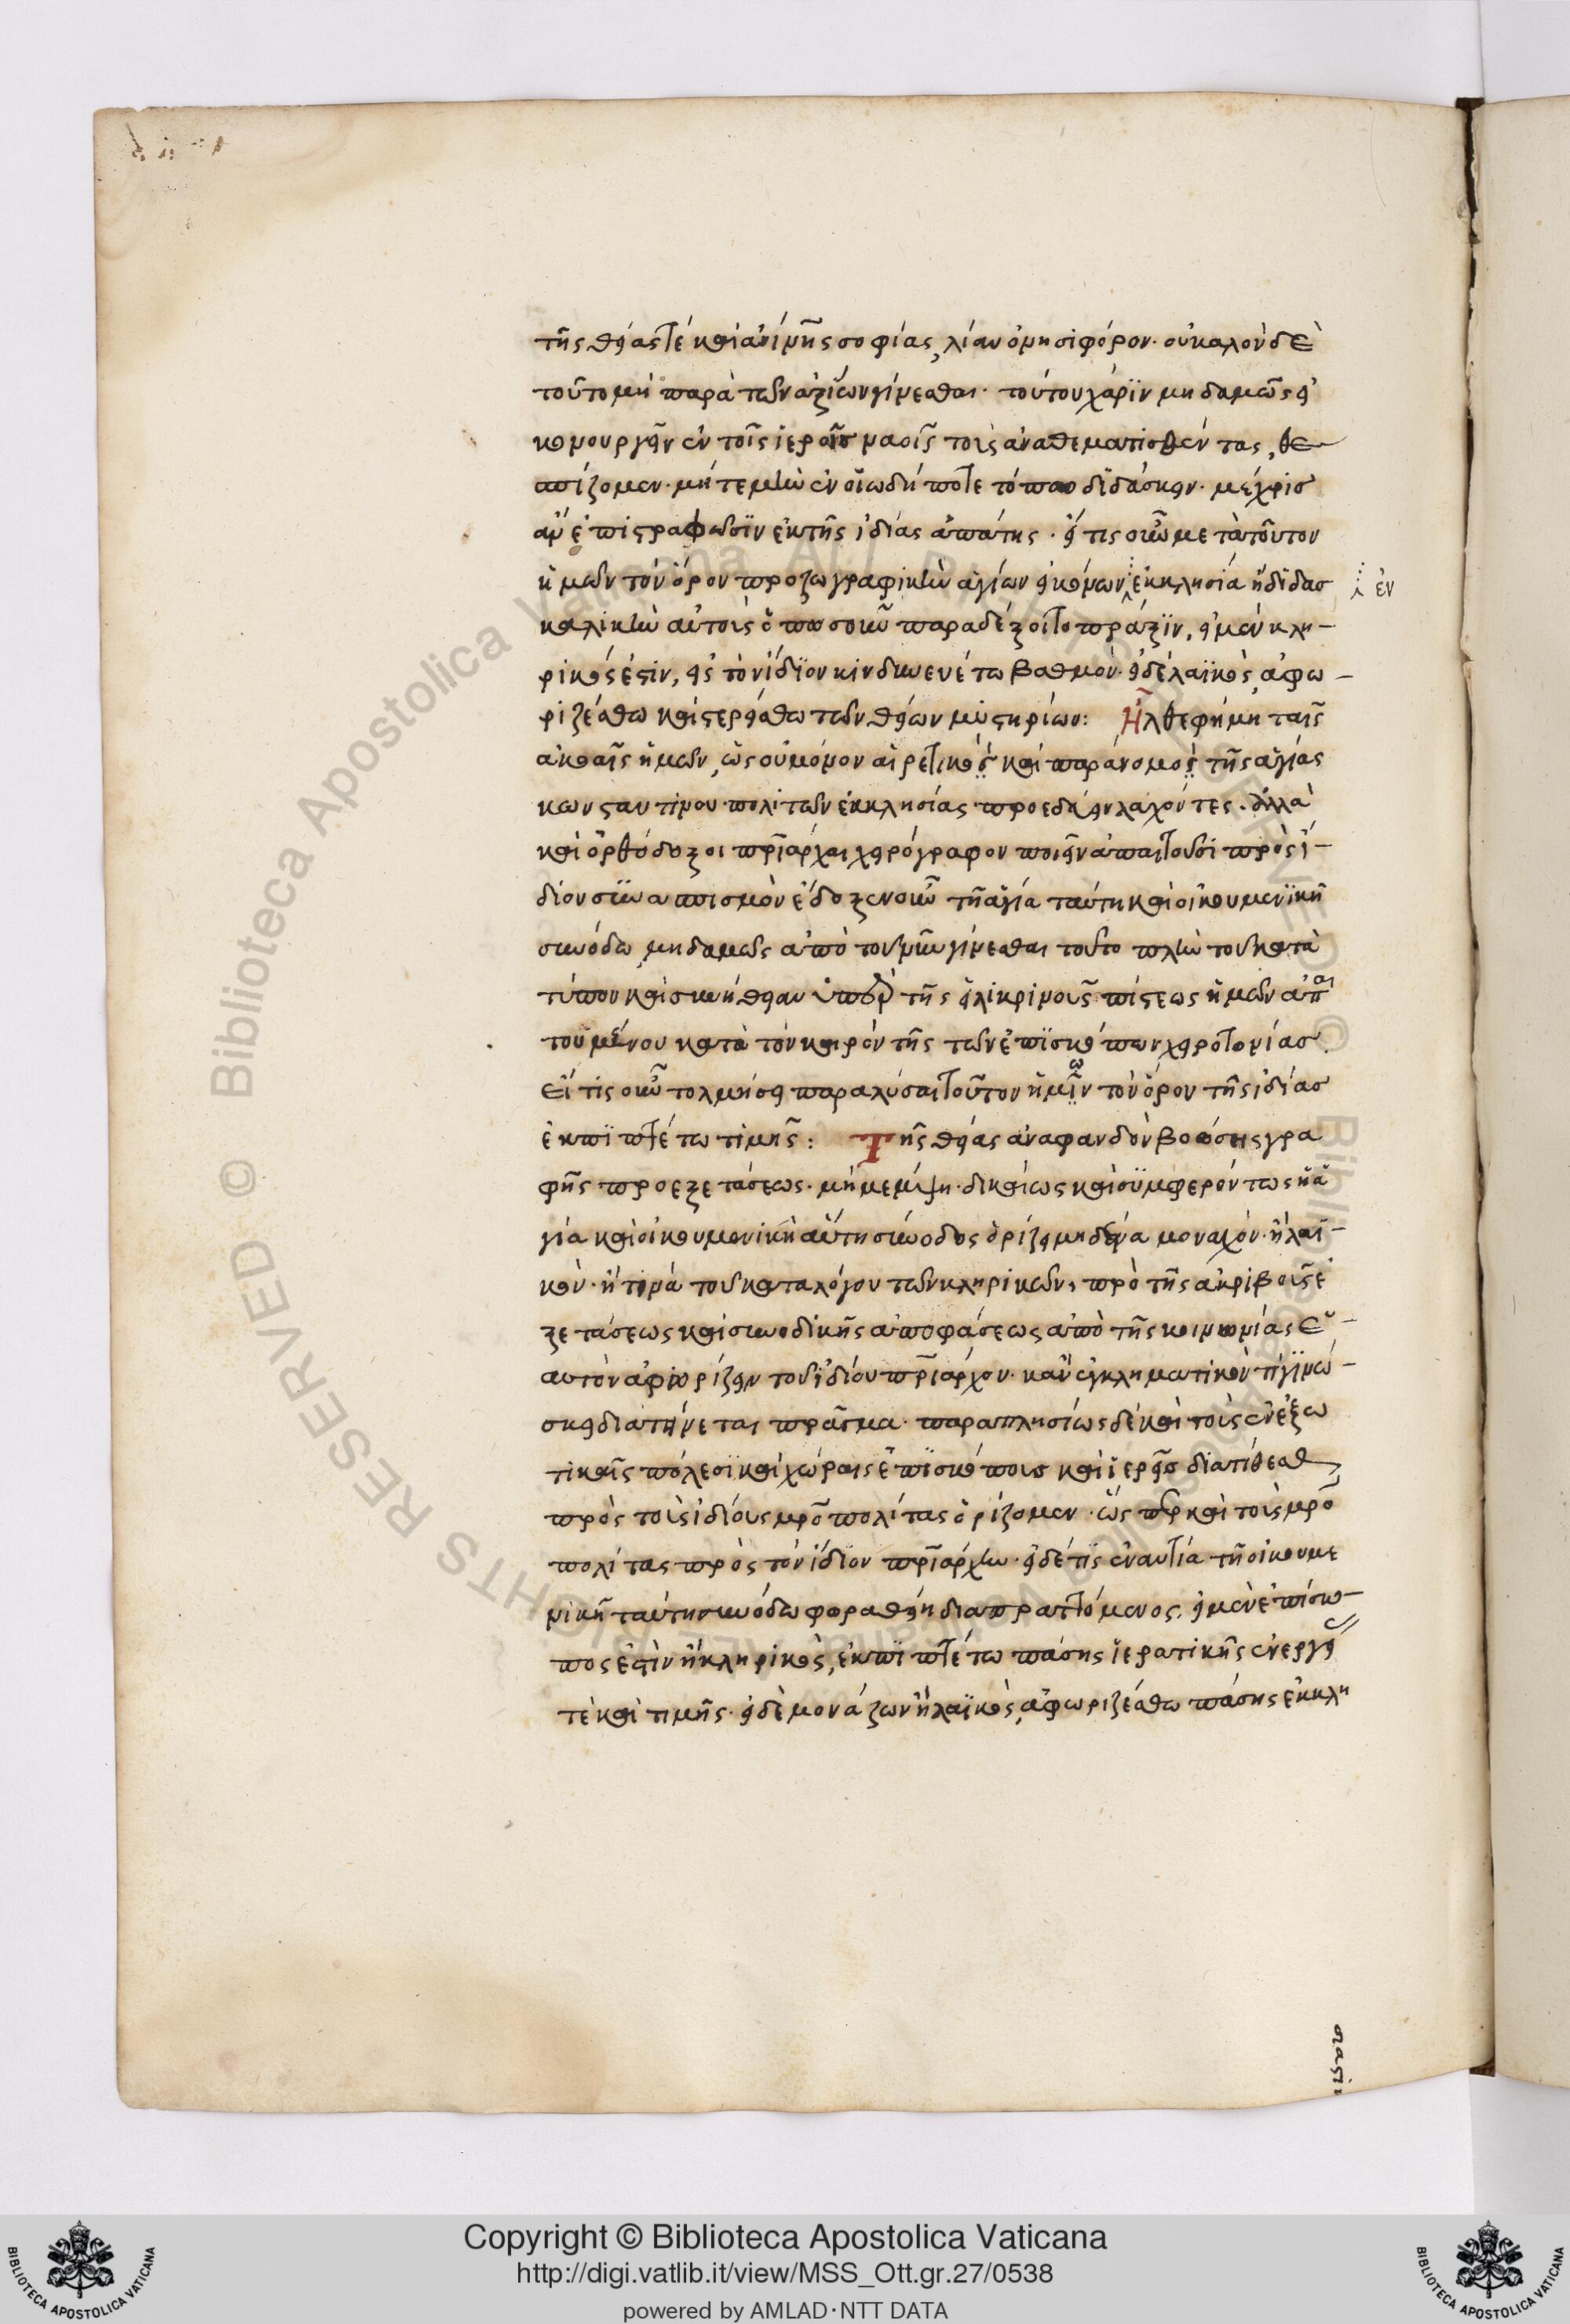 τῆς θείας τὲ καὶ ἀνίμης σοφίας, λίαν ὀνησιφόρον· οὐ καλὸν δὲ
τοῦτο μὴ παρὰ τῶν ἀξίων γίνεσθαι· τούτου χάριν μηδαμῶς εἰ
κονουργεῖν ἐν τοῖς ἱεροῖς ναοῖς τοὺς ἀναθεματισθέντας, θε
σπίζομεν· μήτε μὴν ἐν οἱωδήποτε τόπω διδάσκειν· μέχρις
ἂν ἐπιστραφῶσιν ἐκ τῆς ἰδίας ἀπάτης· εἴ τις οὖν μετὰ τοῦτον
ἡμῶν τὸν ὅρον πρὸ ζωγραφικὴν ἁγίων εἰκόνων ἐκκλησία ἢ διδασ
ἐν
καλικὴν αὐτοὺς ὅπως οὖν παραδέξοιτο πράξιν, εἰ μὲν κλη
ρικός ἐστιν, εἰς τὸν ἴδιον κινδυνευέτω βαθμὸν· εἰ δὲ λαϊκὸς, ἀφω
ριζέσθω καὶ στερείσθω τῶν θείων μυστηρίων: Ἦλθε φήμη ταῖς
ἀκοαῖς ἡμῶν, ὡς οὐ μόνον αἱρετικὸς καὶ παράνομος τῆς ἁγίας
κωνσταντινουπολιτῶν ἐκκλησίας προεδρεύειν λαχόντες· ἀλλὰ
καὶ ὀρθόδοξοι πριάρχαι χειρόγραφον ποιεῖν ἀπαιτοῦσι πρὸς ἴ
διον συνασπισμὸν ἔδοξεν οὖν τῆ ἁγία ταύτη καὶ οἰκουμενικῆ
συνόδω, μηδαμῶς ἀπὸ τοῦ νῦν γίνεσθαι τοῦτο πλὴν τοῦ κατὰ
τύπον καὶ συνήθειαν ὑπὲρ τῆς εἰλικρινοῦς πίστεως ἡμῶν ἀπαι
τουμένου κατὰ τὸν καιρὸν τῆς τῶν ἐπισκόπων χειροτονίας
Εἴ τις οὖν τολμήσει παραλύσαι τοῦτον ἡμῶν τὸν ὅρον τῆς ἰδίας
ἐκπιπτέτω τιμῆς: Τῆς θείας ἀναφανδὸν βοώσης γρα
φῆς προεξετάσεως· μὴ μέμψη· δικαίως καὶ συμφερόντως ἡ ἁ
γία καὶ οἰκουμενικὴ αὕτη σύνοδος ὁρίζει μηδένα μοναχὸν· ἢ λαϊ
κὸν· ἤ τινα τοῦ καταλόγου τῶν κληρικῶν, πρὸ τῆς ἀκριβοῦς ἐ
ξετάσεως καὶ συνοδικῆς ἀποφάσεως ἀπὸ τῆς κοινωνίας ἑ
αυτὸν ἀφορίζειν τοῦ ἰδίου πριάρχου· κἂν ἐγκληματικὸν τί γινώ
σκει διατείνεται πράγμα· παραπλησίως δὲ καὶ τοὺς ἐν ἐξω
τικαῖς πόλεσι καὶ χώραις ἐπισκόπους καὶ ἱερεῖς διατίθεσθ
πρὸς τοὺς ἰδίους μροπολίτας ὁρίζομεν· ὥσπερ καὶ τοὺς μρο
πολίτας πρὸς τὸν ἴδιον πριάρχην· εἰ δέ τις ἐναντία τῆ οἰκουμε
νικῆ ταύτη συνόδω φωραθείη διαπραττόμενος, εἰ μὲν ἐπίσκο
πος ἐστὶν ἢ κληρικὸς, ἐκπιπτέτω πάσης ἱερατικῆς ἐνεργεί
τὲ καὶ τιμῆς· εἰ δὲ μονάζων ἢ λαϊκὸς, ἀφωριζέσθω πάσης ἐκκλη
Copyright © Biblioteca Apostolica Vaticana
http://digi.vatlib.it/view/MSS_Ott.gr.27/0538
powered by AMLAD·NTT DATA